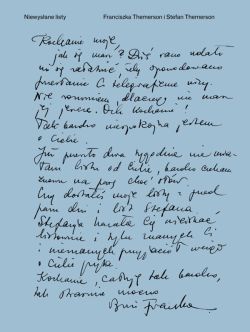 Niewysłane listy Franciszka Themerson i Stefan Themerson
Kochanie moje
jak się masz? Dziś rano udało
mi się załatwić, żeby spowodowano
przesłanie Ci telegraficznie wizy.
Nie rozumiem, dlaczego nie masz
jej jeszcze. Och Kochanie!
Tak bardzo niespokojna jestem
o Ciebie.
Już prawie dwa tygodnie nie mia-
łam listu od Ciebie, bardzo
na parę choć słów.
Czy dostałeś moje listy i
paru dni i list Stefana
Stefania
i tylu znanych Ci
i nieznanych przyjaciół
o Ciebie pyta.
Kochanie, całuję tak bardzo,
tak strasznie mocno
Franka